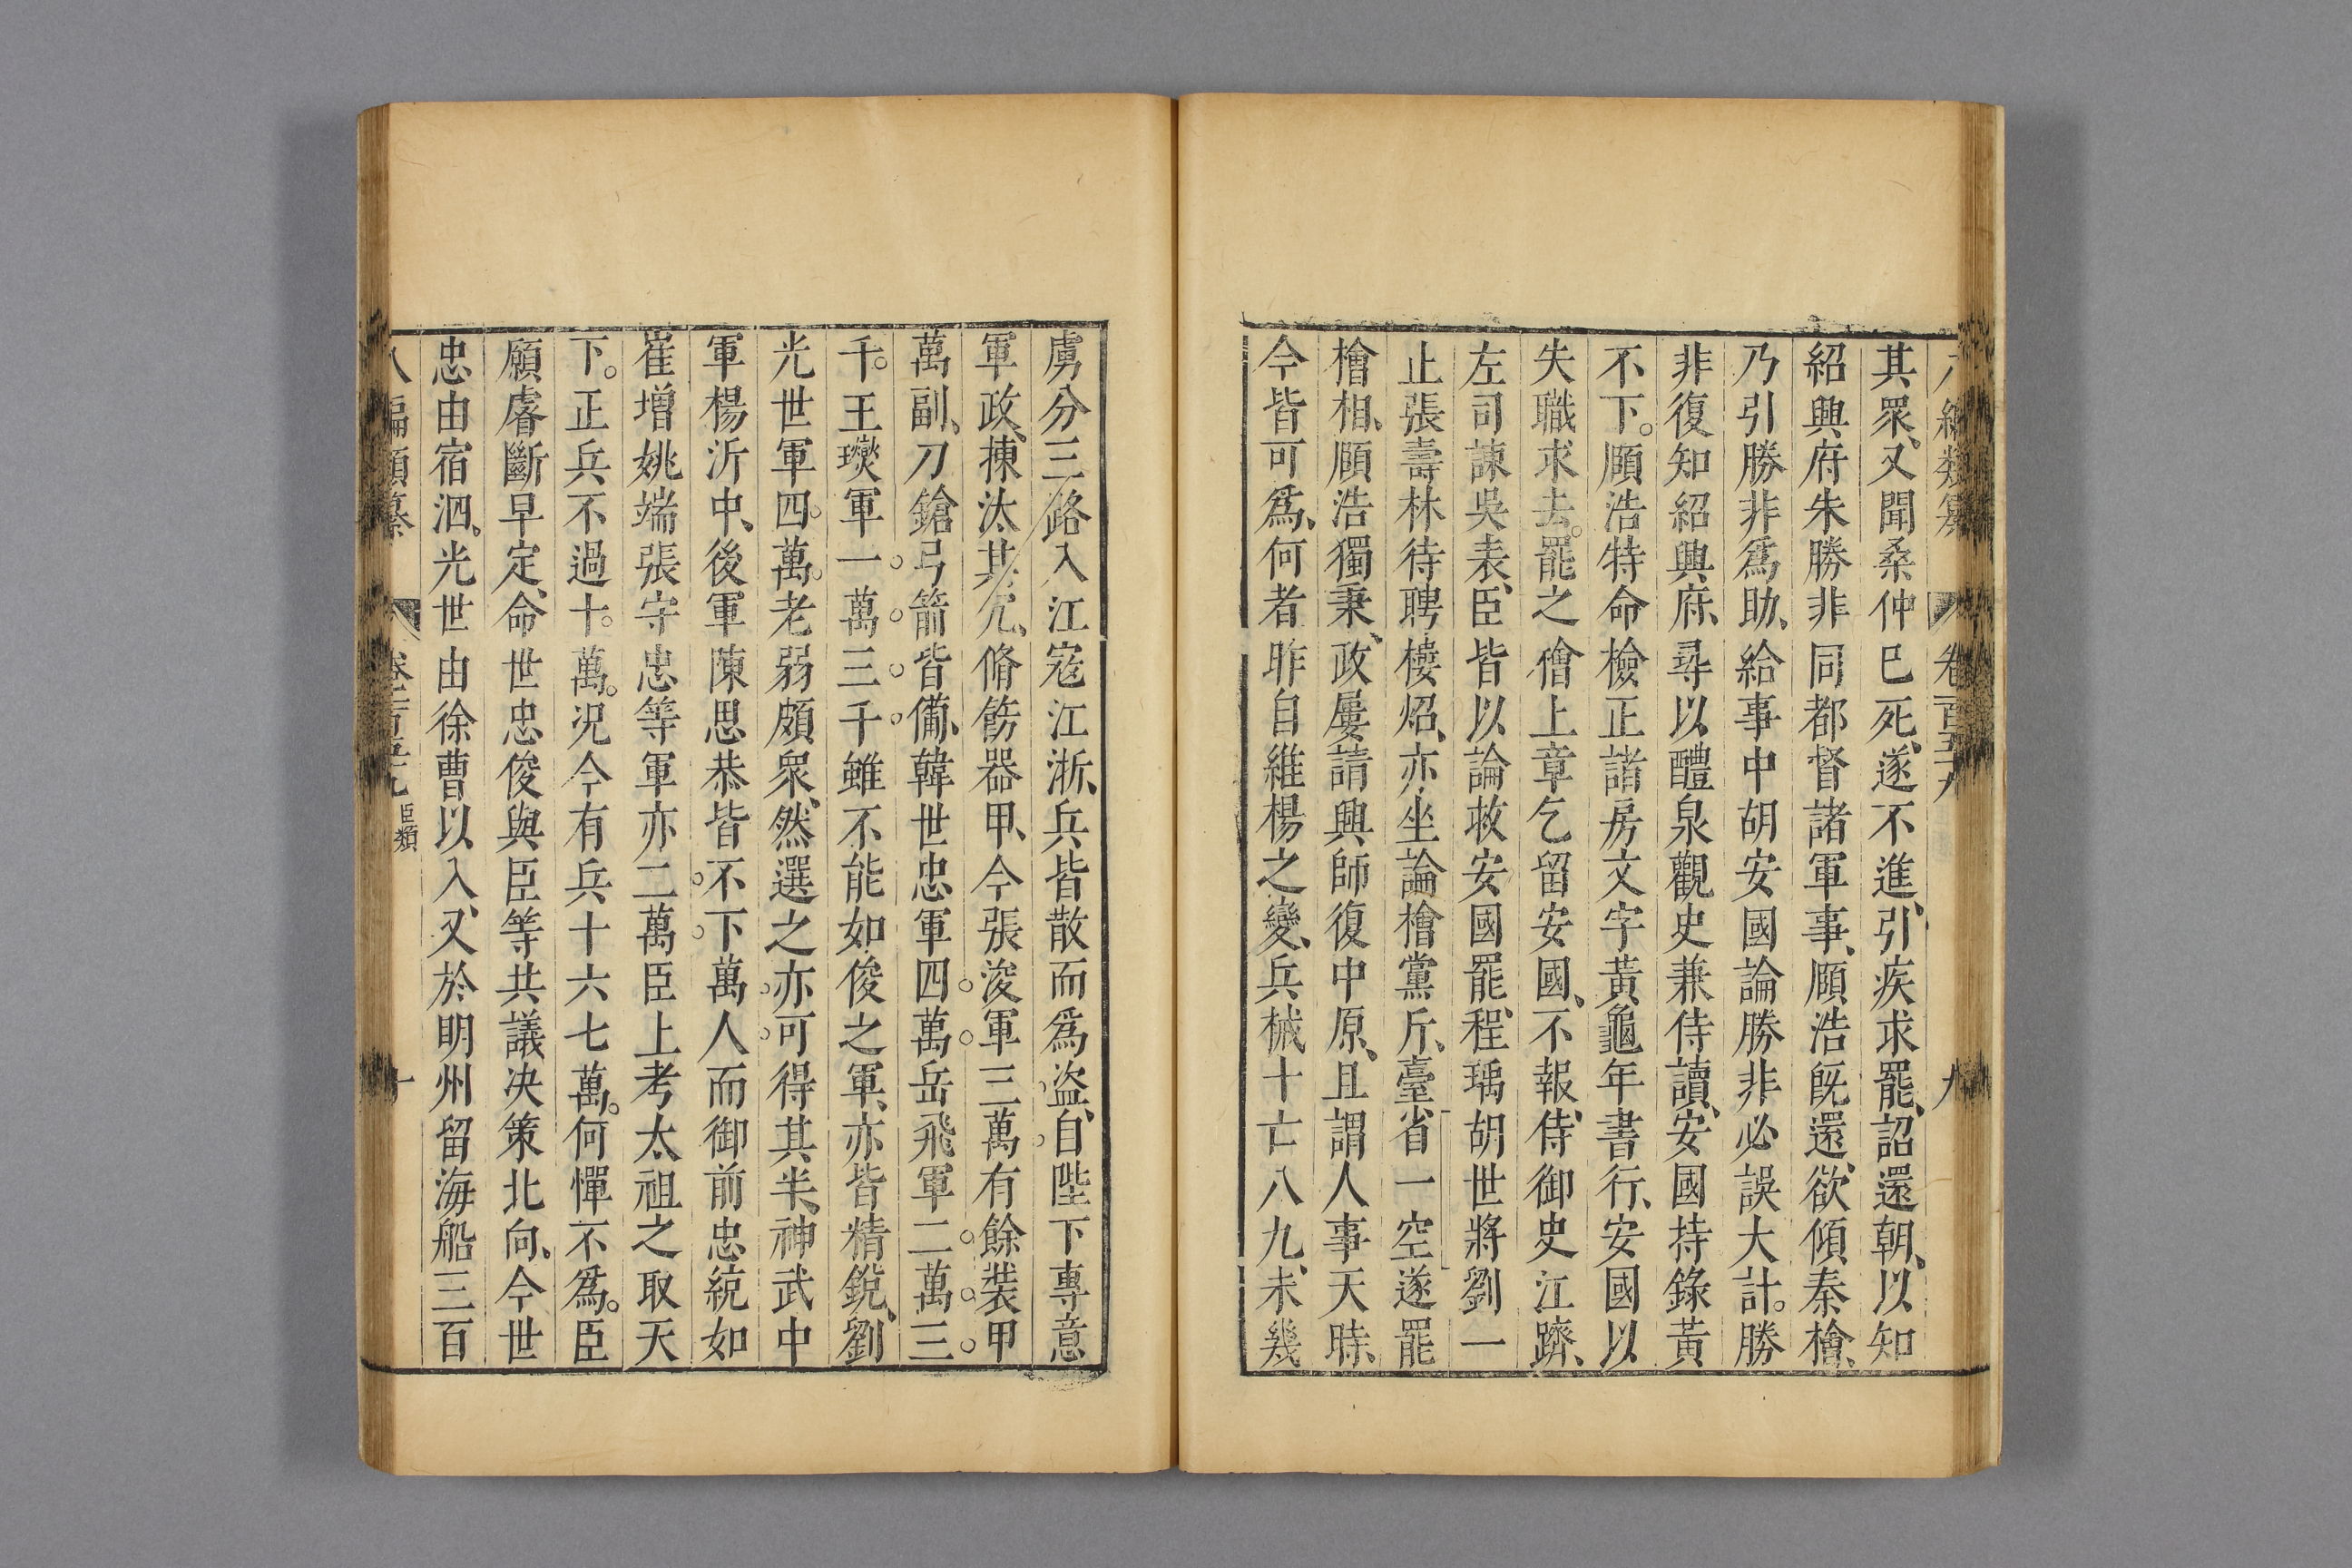 編類纂 卷一百五十九 九
其衆又聞桑仲已死遂不進引疾求罷詔還朝以知
紹興府朱勝非同都督諸軍事頤浩旣還欲傾秦檜
乃引勝非爲助給事中胡安國論勝非必誤大計勝
非復知紹興府尋以醴泉觀史兼侍讀安國持錄黃
不下頤浩特命檢正諸房文字黃龜年書行安國以
失職求去罷之檜上章乞留安國不報侍御史江躋
左司諫吳表臣皆以論救安國罷程瑀胡世將劉一
止張壽林待聘樓炤亦坐論檜黨斥臺省一空遂罷
檜相頤浩獨秉政屢請興師復中原且謂人事天時
今皆可爲何者昨自維楊之變兵械十亡八九未幾
虜分三路入江寇江浙兵皆散而爲盜自陛下專意
軍政揀汰其冗脩飭器甲今張浚軍三萬有餘裝甲
萬副刀鎗弓箭皆備韓世忠軍四萬岳飛軍二萬三
千王𤫉軍一萬三千雖不能如俊之軍亦皆精銳劉
光世軍四萬老弱頗衆然選之亦可得其半神武中
軍楊沂中後軍陳思恭皆不下萬人而御前忠統如
崔增姚端張守忠等軍亦二萬臣上考太祖之取天
下正兵不過十萬况今有兵十六七萬何憚不爲臣
願睿斷早定命世忠俊與臣等共議决策北向今世
忠由宿泗光世由徐曹以入又於明州留海船三百
八編類纂 卷一百五十九 臣類 十